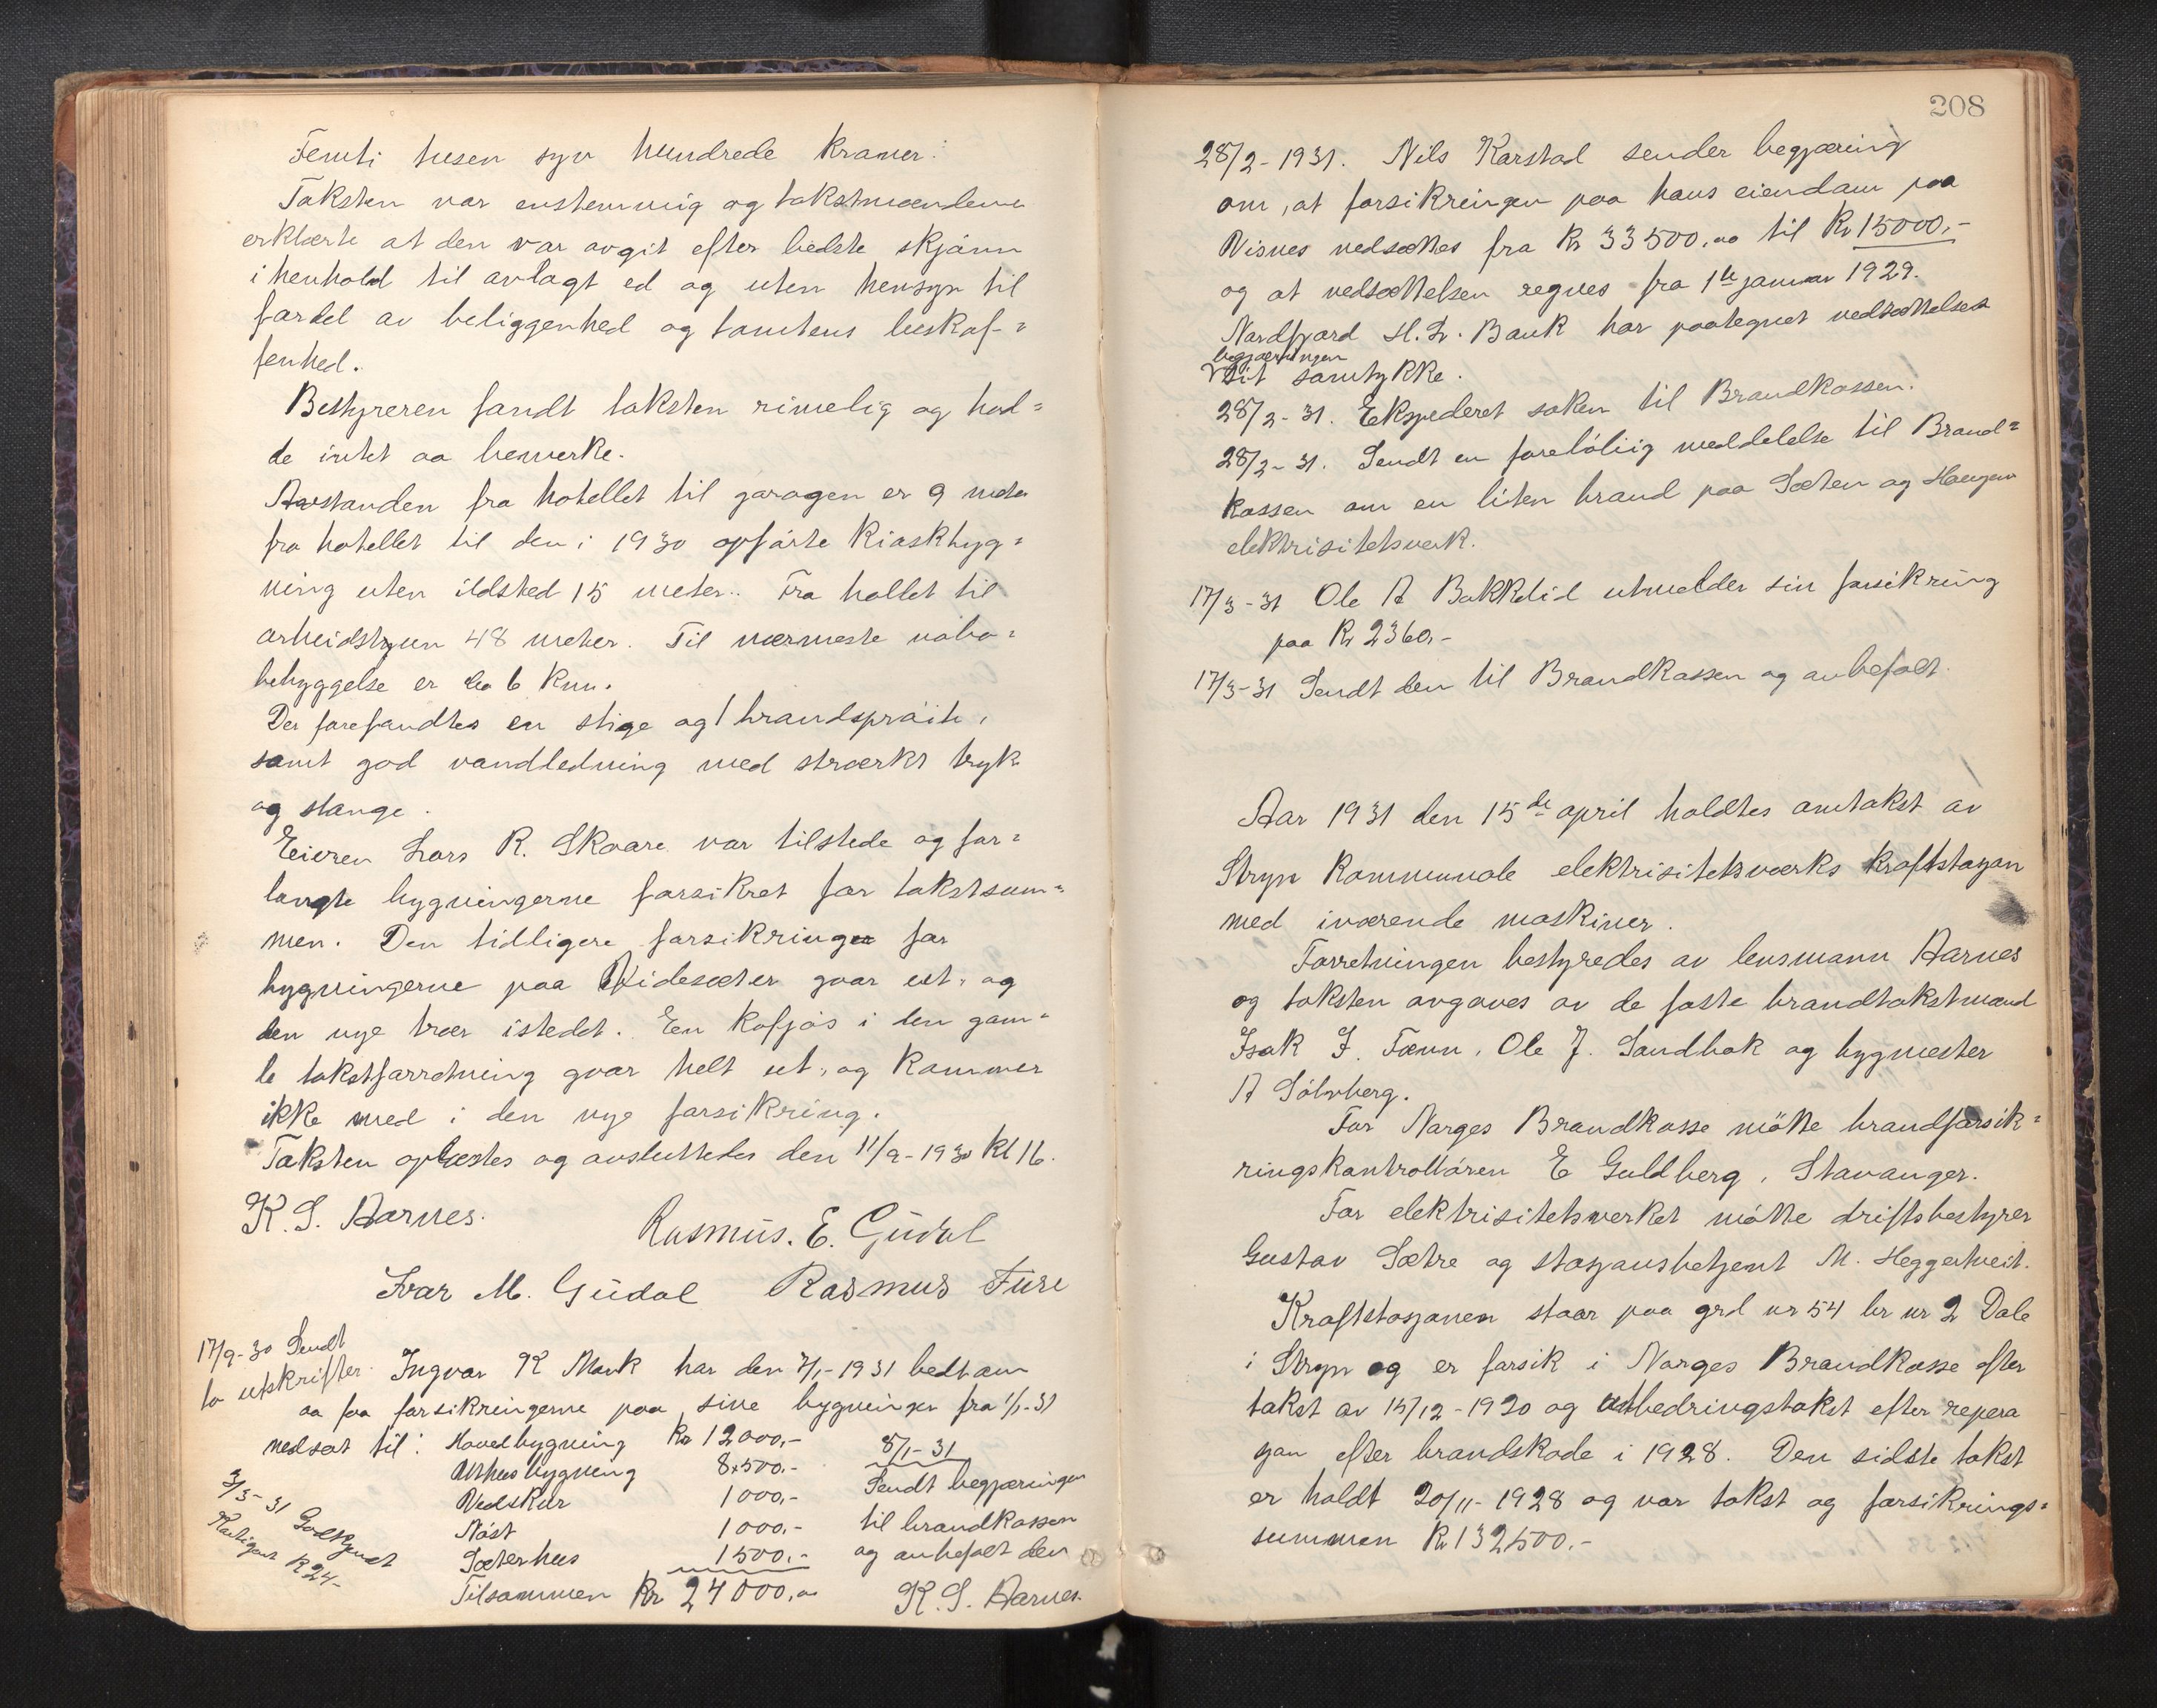 Femti tusen syv hundrede kroner.
Taksten var enstemmig og takstmændene
erklærte at den var avgit efter bedste skjönn
i henhold til avlagt ed og uten hensyn til
fordel av beliggenhed og tomtens beskaf-
fenhed.
Bestyreren fandt taksten rimelig og had-
de intet aa bemerke.
Avstanden fra hotellet til garagen er 9 meter
fra hotellet til den i 1930 opförte kioskbyg-
ning uten ildsted 15 meter. Fra hollet til
arbeidstyen 48 meter. Til nærmeste nabo-
bebyggelse er ca 6 km.
Der forefandtes en stige og 1 brandspröite,
samt god vandledning med strærkt tryk
og slange.
Eieren Lars R. Skaare var tilstede og for-
langte bygningerne forsikret for takstsum-
men. Den tidligere forsikring for
bygningerne paa Videsæter gaar ut, og
den nye træer istedet. En kafjös i den gam-
le takstforretning gaar helt ut, og kommer
ikke med i den nye forsikring.
Taksten oplæstes og avsluttedes den 11/9-1930 kl 16.
K. S. Aarnes.
Rasmus. E. Gudal
Ivar M. Gudal Rasmus Fure
17/9-30 Sendt
to utskrifter.
Ingvar K Mork har den 7/1-1931 bedt om
aa faa forsikringerne paa sine bygninger fra 1/1-31
nedsat til: Hovedbygning Kr 12000,-
Uthusbygning 8500.-
Vedskur 1000,-
Nöst 1000,-
Sæterhus 1500,-
Tilsammen Kr 24000,00
8/1-31
Sendt begjæringen
til brandkassen
og anbefalt den
K. S. Aarnes.
3/3-31 Godkjendt
Kontigent K 24-
208
28/2-1931. Nils Karstad sender begjæring
om, at forsikringen paa hans eiendom paa
Visnes nedsættes fra Kr 33500,00 til Kr 15000,-
og at nedsættelsen regnes fra 1te januar 1929.
Nordfjord H. L. Bank har paategnet nedsættelses
begjæringen
sit samtykke.
28/2-31. Ekspederet saken til Brandkassen.
28/2-31. Sendt en foreløbig meddelelse til Brand-
kassen om en liten brand paa Sæten og Haugen
elektrisitetsverk.
17/3-31 Ole A Bakklid utmelder sin forsikring
paa Kr 2360,-
17/3-31 Sendt den til Brandkassen og anbefalt.
Aar 1931 den 15de april holdtes omtakst av
Stryn Kommunale elektrisitetsværks kraftstasjon
med iværende maskiner.
Forretningen bestyredes av lensmann Aarnes
og taksten avgaves av de faste brandtakstmænd
Isak I. Tænn, Ole J. Sandbak og bygmester
A Sölvberg.
For Norges Brandkasse mötte brandforsik-
ringskontrollören E Guldberg, Stavanger.
For elektrisitetsverket mötte driftsbestyrer
Gustav Sætre og stasjonsbetjent M. Heggertveit.
Kraftstasjonen staar paa grd nr 54 br nr 2 Dale
i Stryn og er forsik i Norges Brandkasse efter
takst av 15/12-1920 og utbedringstakst efter repera
sjon efter brandskade i 1928. Den sidste takst
er holdt 20/11-1928 og var takst og forsikrings-
summen Kr 132500.-